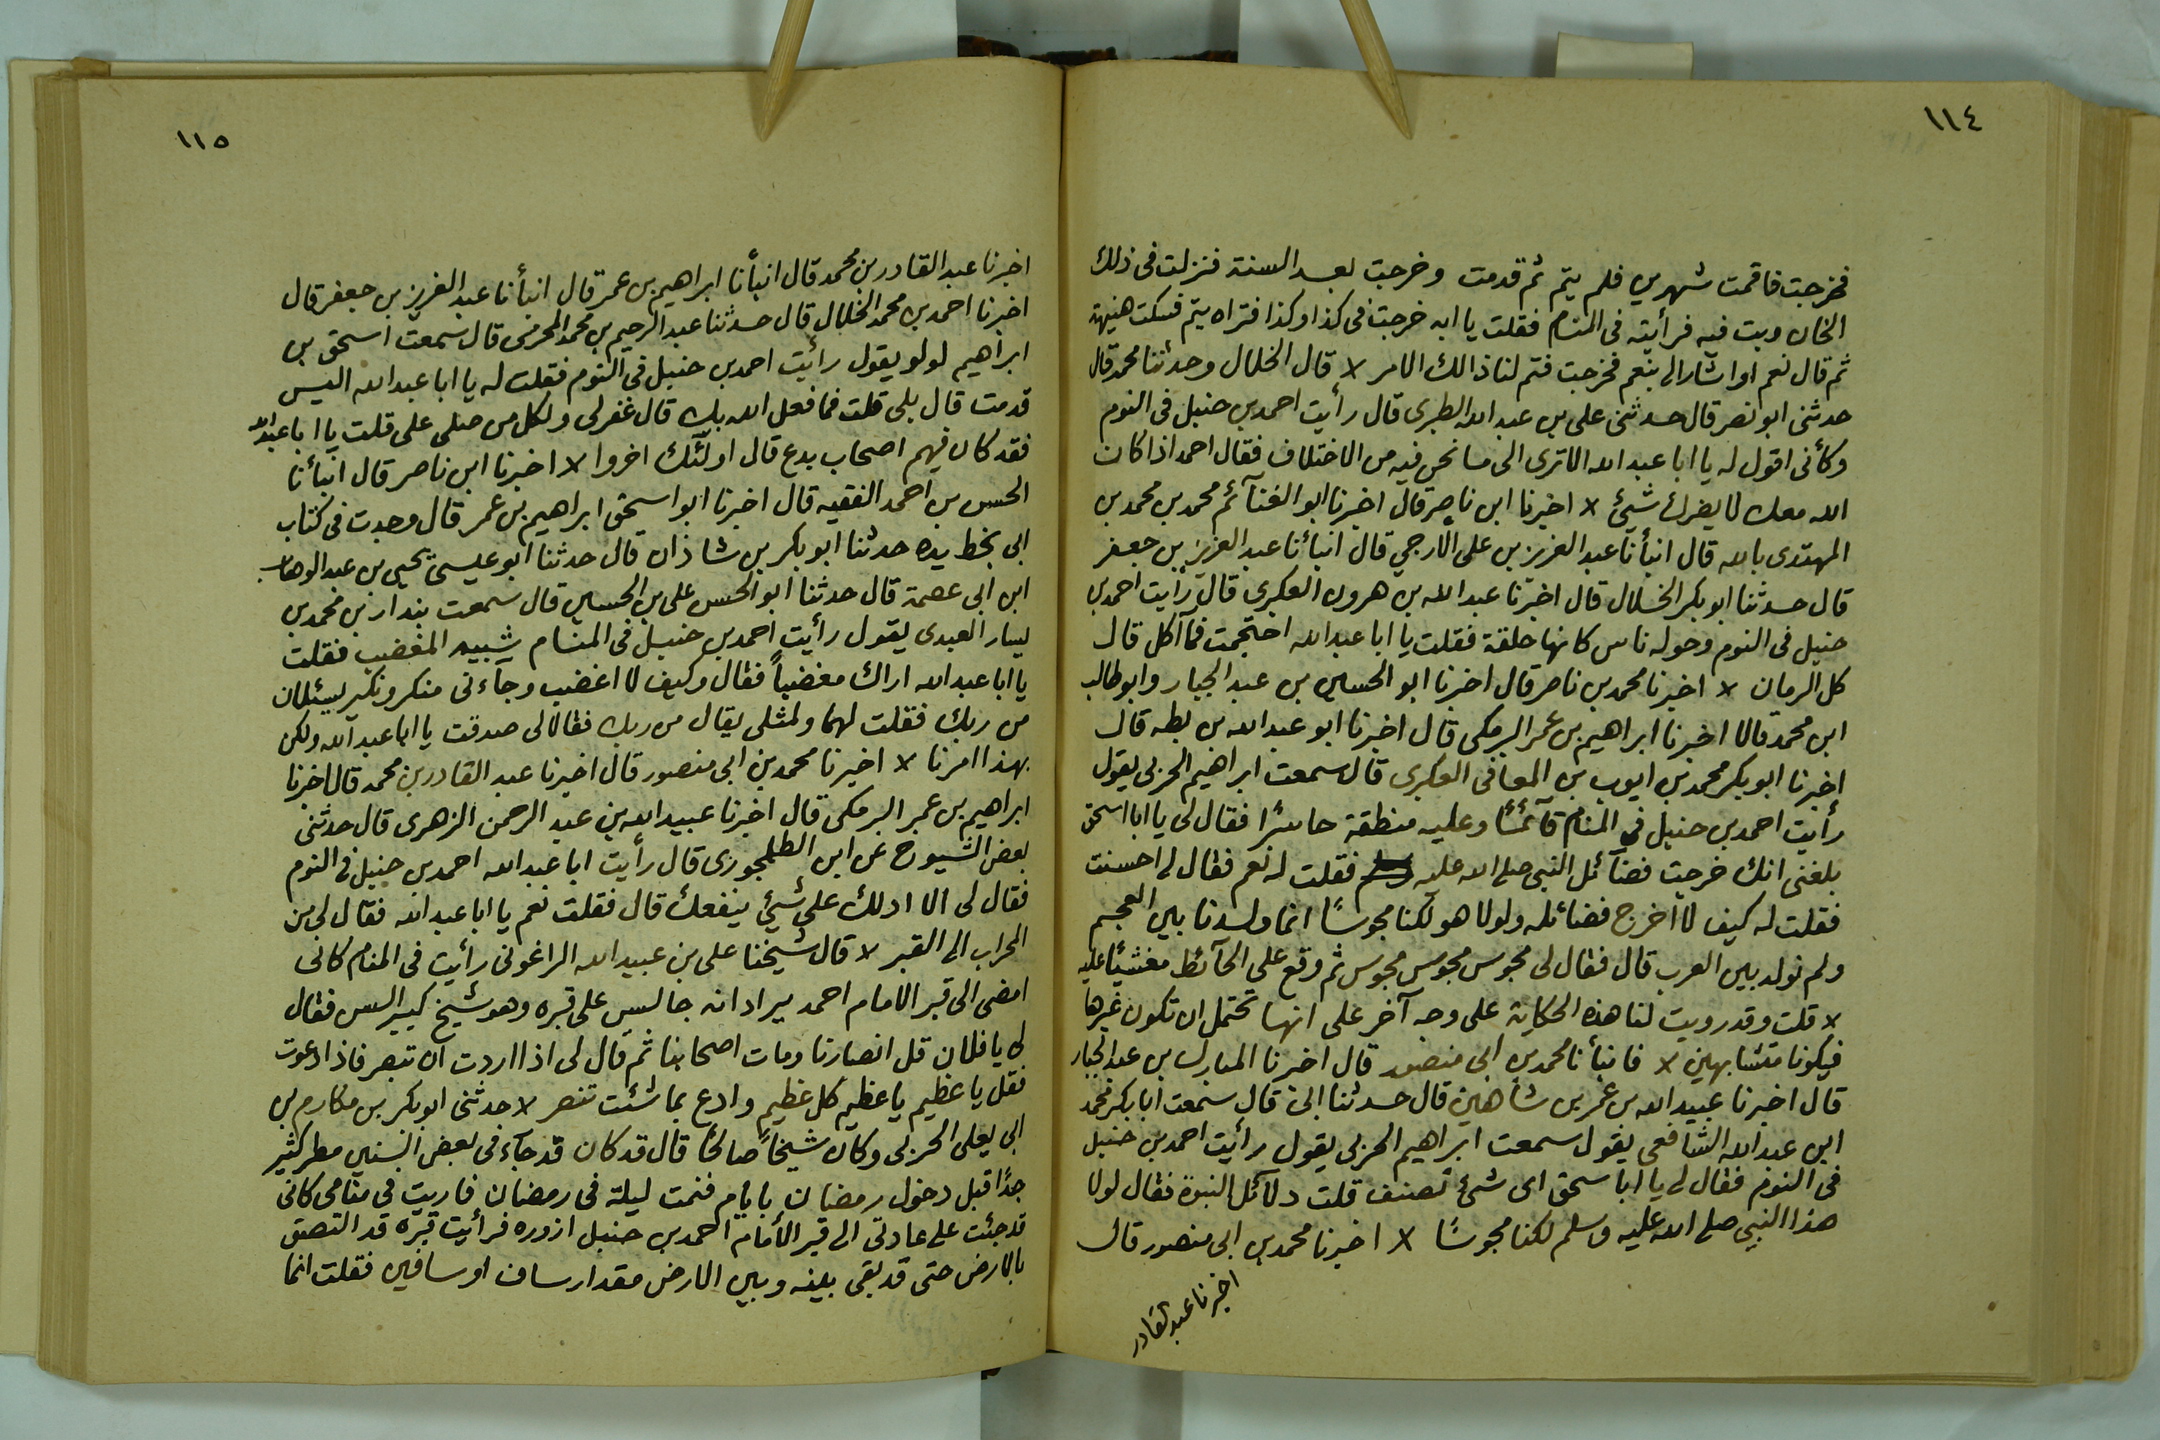 ١١٤
فخرجت فاقمت شهرين فلم يتم ثم قدمت وخرجت بعد السنة فنزلت فى ذلك
الخان وبت فيه فرأيته فى المنام فقلت يا ابه خرجت فى كذا وكذا فتراه يتم فسكت هنيهة
ثم قال نعم اواشار الى بنعم فخرجت فتم لنا ذالك الامر لا قال الخلال وحدثنا محمد قال
حدثنى ابو نصر قال حدثنى على بن عبد الله الطبرى قال رأيت احمد بن حنبل فى النوم
وكأنى اقول له يا ابا عبد الله الا ترى الى ما نحن فيه من الاختلاف فقال احمد اذا كان
الله معك لا يضرك شيئ لا اخبرنا ابن ناصر قال اخبرنا ابو الغنآئم محمد بن محمد بن
المهتدى بالله قال انبأنا عبد العزيز بن على الارجي قال انبأنا عبد العزيز بن جعفر
قال حدثنا ابو بكر الخلال قال اخبرنا عبد الله بن هرون العكبرى قال رأيت احمد بن
حنبل فى النوم وحوله ناس كانها حلقة فقلت يا ابا عبد الله احتجمت فما آكل قال
كل الرمان لا اخبرنا محمد بن ناصر قال اخبرنا ابو الحسين بن عبد الجبار وابو طالب
ابن محمد قالا اخبرنا ابراهيم بن عمر البرمكى قال اخبرنا ابو عبد الله بن بطه قال
اخبرنا ابو بكر محمد بن ايوب بن المعافى العكبرى قال سمعت ابراهيم الحربى يقول
رأيت احمد بن حنبل في المنام قآئمًا وعليه منطقة حاسرًا فقال لى يا ابا اسحق
بلغنى انك خرجت فضآئل النبى صلى الله عليه وسلم فقلت له نعم فقال لى احسنت
فقلت له كيف لا اخرج فضائله ولولا هو لكنا مجوسًا انما ولدنا بين العجم
ولم نولد بين العرب قال فقال لى مجوس مجوس مجوس ثم وقع على الحآئط مغشيًا عليه
لا قلت وقد رويت لنا هذه الحكاية على وجه آخر على انها تحتمل ان تكون غيرها
فيكونا متشابهين لا فانبأنا محمد بن ابى منصور قال اخبرنا المبارك بن عبد الجبار
قال اخبرنا عبيد الله بن عمر بن شاهين قال حدثنا ابى قال سمعت ابا بكر محمد
ابن عبد الله الشافعى يقول سمعت ابراهيم الحربى يقول رأيت احمد بن حنبل
فى النوم فقال لى يا ابا سحق اى شئ تصنف قلت دلآئل النبوة فقال لولا
هذا النبي صلى الله عليه وسلم لكنا مجوسًا لا اخبرنا محمد بن ابى منصور قال
اخبرنا عبد القادر
١١٥
اخبرنا عبد القادر بن محمد قال انبأنا ابراهيم بن عمر قال انبأنا عبد العزيز بن جعفر قال
اخبرنا احمد بن محمد الخلال قال حدثنا عبد الرحيم بن محمد المخرمى قال سمعت اسحق بن
ابراهيم لولو يقول رأيت احمد بن حنبل فى النوم فقلت له يا ابا عبد الله اليس
قدمت قال بلى قلت فما فعل الله بك قال غفر لى ولكل من صلى على قلت يا ابا عبد الله
فقد كان فيهم اصحاب بدع قال اولٓئك اخروا لا اخبرنا ابن ناصر قال انبأنا
الحسن بن احمد الفقيه قال اخبرنا ابو اسحق ابراهيم بن عمر قال وجدت فى كتاب
ابى بخط يده حدثنا ابو بكر بن شاذان قال حدثنا ابو عيسى يحيى بن عبد الوهاب
ابن ابى عصمة قال حدثنا ابو الحسن على بن الحسين قال سمعت بندار بن محمد بن
يسار العبدى يقول رأيت احمد بن حنبل فى المنام شبيه المغضب فقلت
يا ابا عبد الله اراك مغضباً فقال وكيف لا اغضب وجآءنى منكر ونكير يسئلان
من ربك فقلت لهما ولمثلى يقال من ربك فقالا لى صدقت يا ابا عبد الله ولكن
بهذا امرنا لا اخبرنا محمد بن ابى منصور قال اخبرنا عبد القادر بن محمد قال اخبرنا
ابراهيم بن عمر البرمكى قال اخبرنا عبيد الله بن عبد الرحمن الزهرى قال حدثنى
بعض الشيوخ عن ابن الطلجورى قال رأيت ابا عبد الله احمد بن حنبل فى النوم
فقال لى الا ادلك على شيئ ينفعك قال فقلت نعم يا ابا عبد الله فقال لى من
المحراب الى القبر لا قال شيخنا على بن عبيد الله الراغونى رأيت فى المنام كانى
امضى الى قبر الامام احمد يراد انه جالس على قبره وهو شيخ كبير السن فقال
لى يا فلان قل انصارنا ومات اصحابنا ثم قال لى اذا اردت ان تنصر فاذا دعوت
فقل يا عظيم يا عظيم كل عظيم وادع بما شئت تنصر لا حدثنى ابو بكر بن مكارم بن
ابى يعلى الحربى وكان شيخاً صالحًا قال قد كان قد جآء فى بعض السنين مطر كثير
جدًا قبل دخول رمضان بايام فنمت ليلة فى رمضان فاريت في منامى كانى
قد جئت على عادتى الى قبر الأمام احمد بن حنبل ازوره فرأيت قبره قد التصق
بالارض حتى قد بقى بينه وبين الارض مقدار ساف او سافين فقلت انما